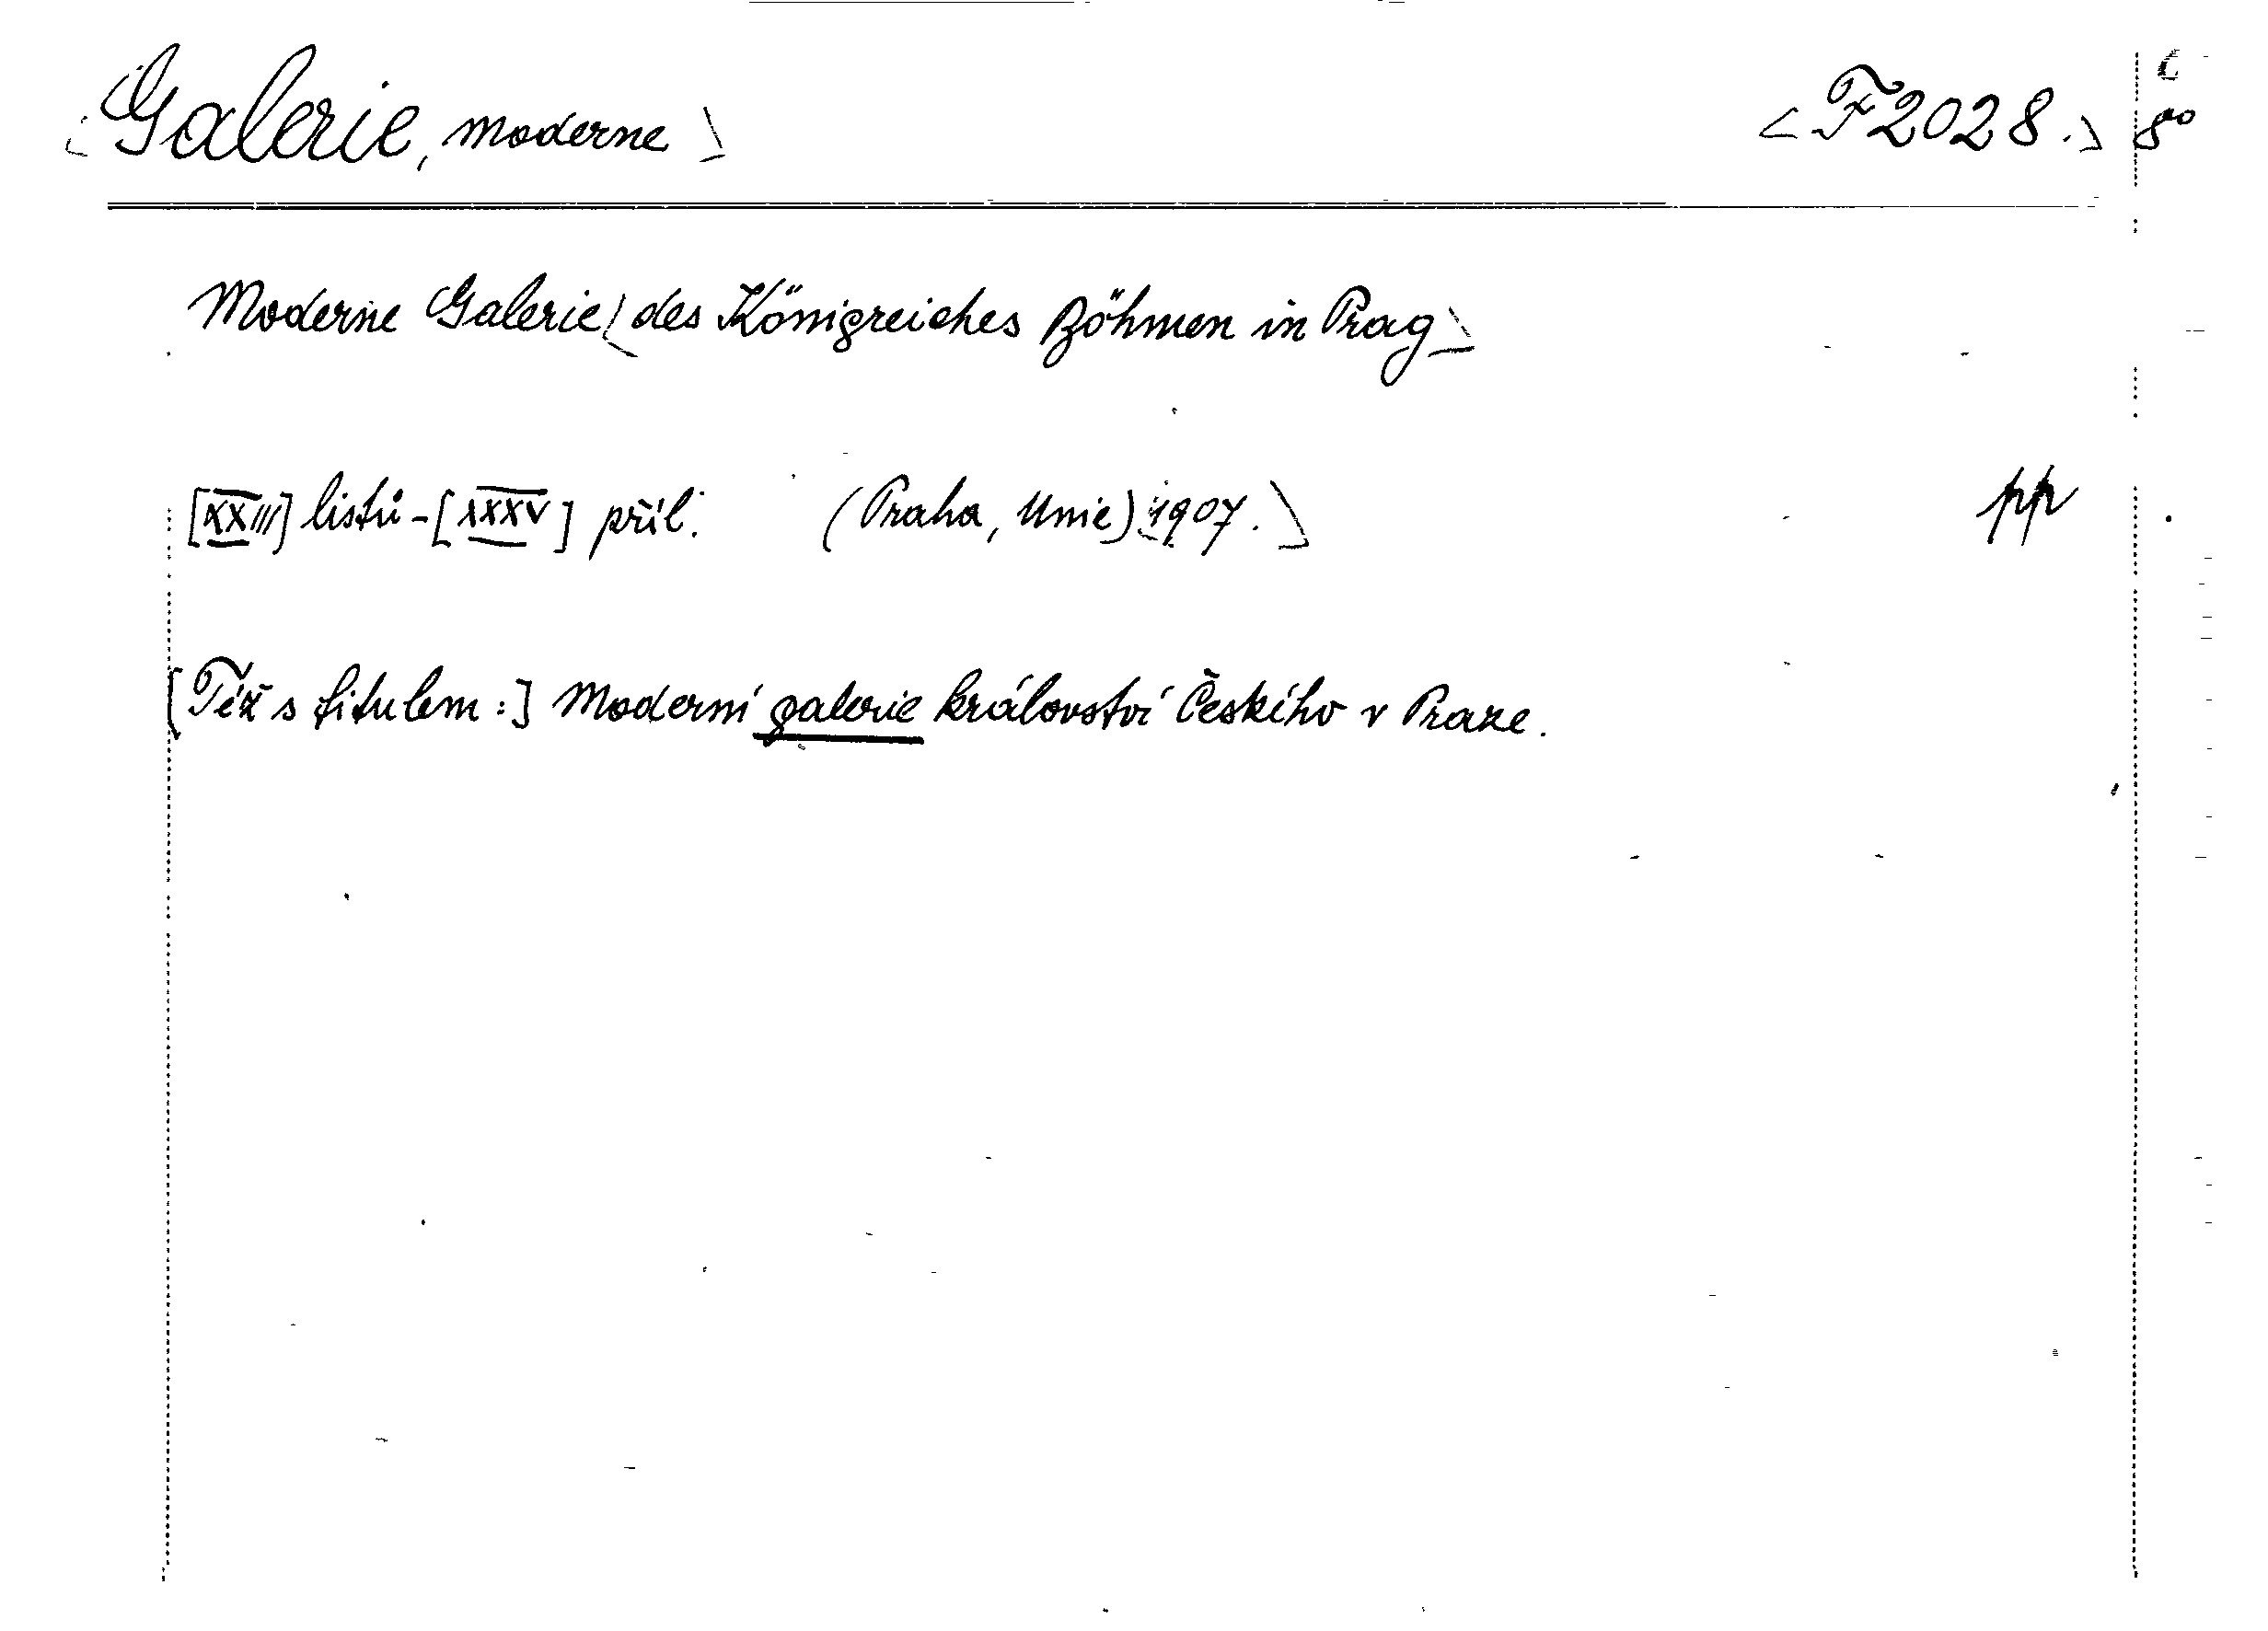 Galerie, moderne <F 2028.> 8°
Moderne Galerie des Königreiches Böhmen in Prag
[XXIII] listů - [XXXV] příl. (Praha, Unie) 1907. pp
[Též s titulem:] Moderní galerie království Českého v Praze.